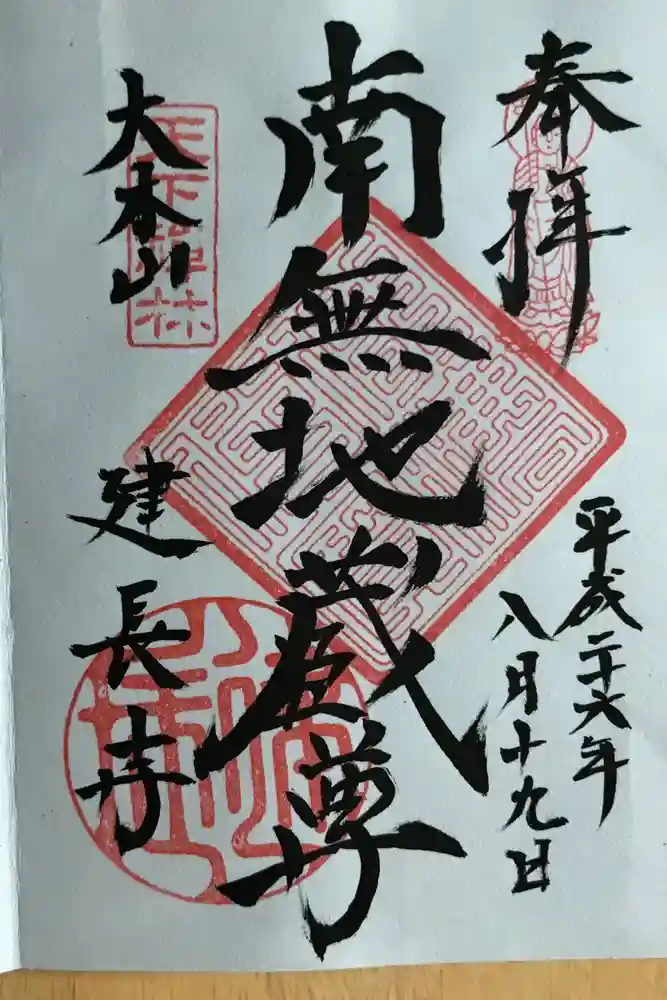 奉拝
平成二十六年
八月十九日
南無地蔵尊
天下禅林
大本山
建長寺